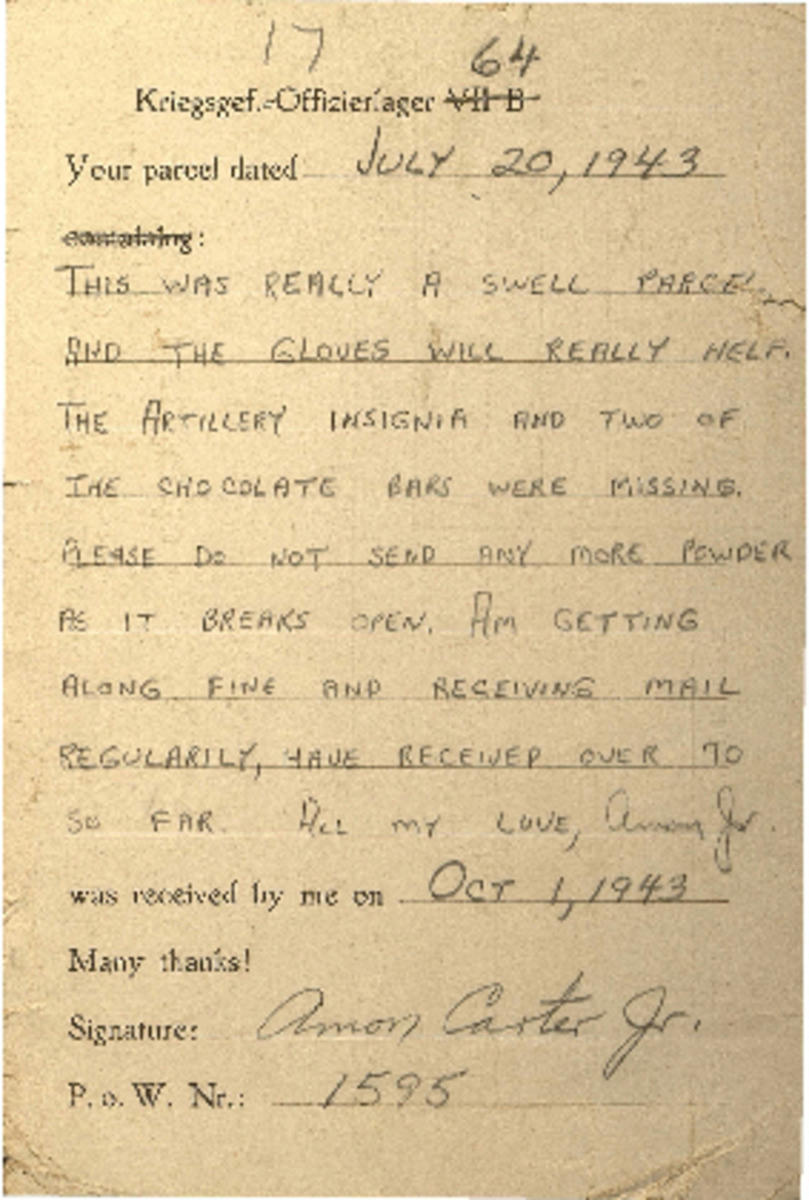 17
64
Kriegsgef.-Offizierlager VII B
Your parcel dated JULY 20, 1943
containing:
THIS WAS REALLY A SWELL PARCEL
AND THE GLOVES WILL REALLY HELP.
THE ARTILLERY INSIGNIA AND TWO OF
THE CHOCOLATE BARS WERE MISSING.
PLEASE DO NOT SEND ANY MORE POWDER
AS IT BREAKS OPEN. AM GETTING
ALONG FINE AND RECEIVING MAIL
REGULARILY, HAVE RECEIVED OVER 70
SO FAR. ALL MY LOVE, Amon Jr.
was received by me on OCT 1, 1943
Many thanks!
Signature: Amon Carter Jr.
P. o. W. Nr.: 1595